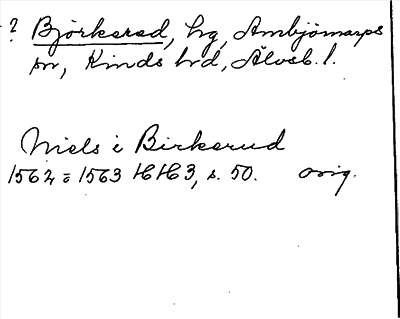 ? Björkered, hg, Ambjörnarps
sn, Kinds hd, Älvsb. l.
Niels i Birkerud
1562 = 1563 HH3, s. 50. orig.